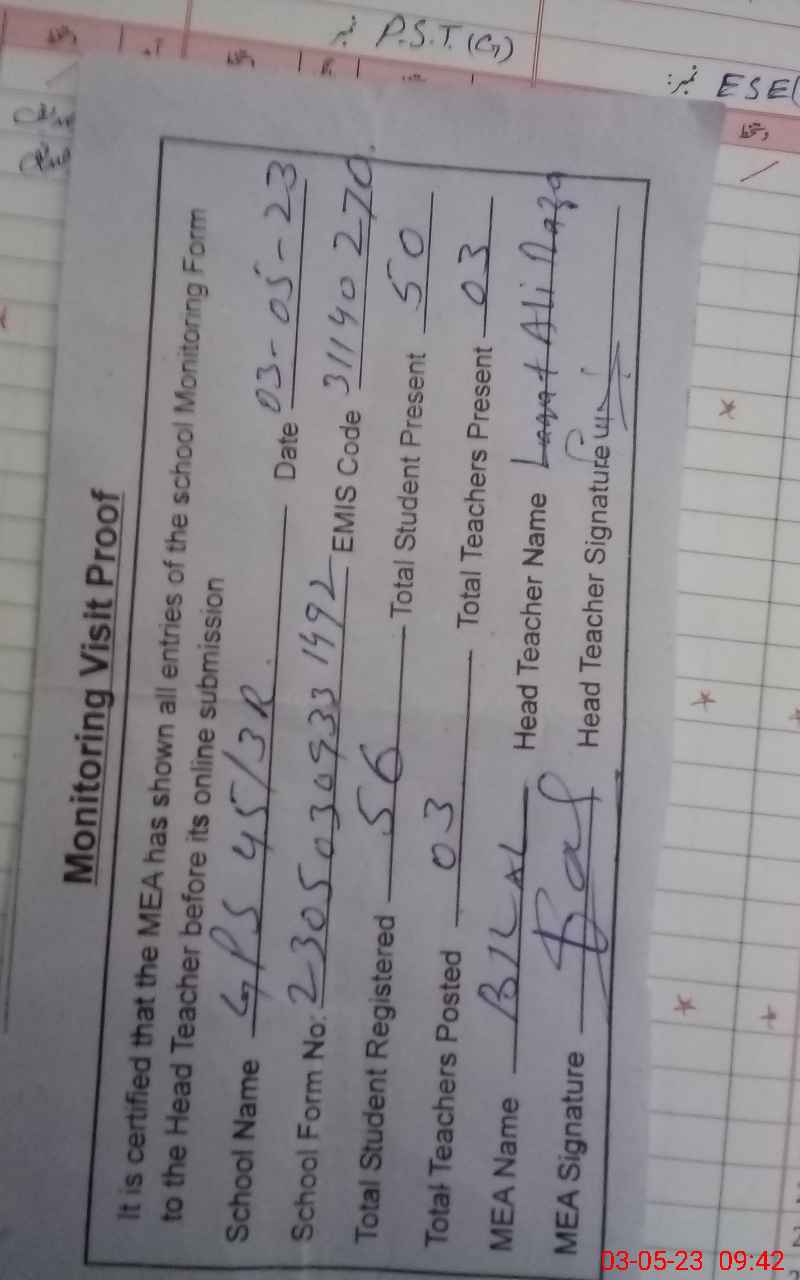 P.S.T.(G)
ESE(
Monitoring Visit Proof
It is certified that the MEA has shown all entries of the school Monitoring Form
to the Head Teacher before its online submission
School Name GPS 45/3R. Date 03-05-23
School Form No: 2305030933 1492 EMIS Code 31140270.
Total Student Registered 56 Total Student Present 50
Total Teachers Posted 03 Total Teachers Present 03
MEA Name BILAL Head Teacher Name Ali
MEA Signature Head Teacher Signature
03-05-23 09:42